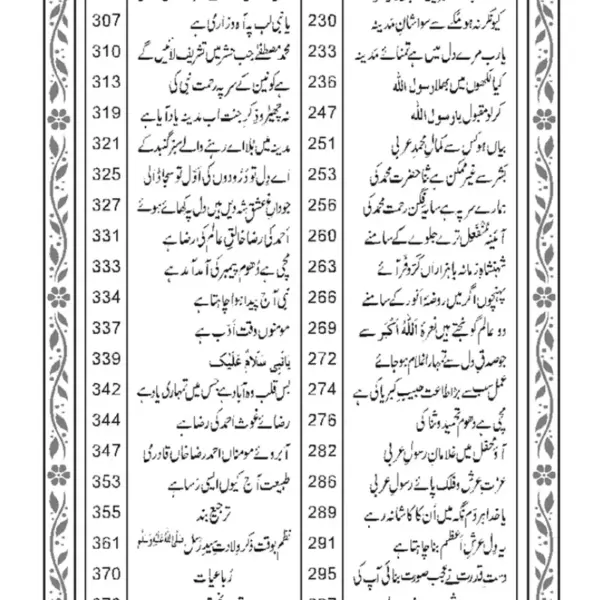 کیونکر نہ ہو مکے سے سوا شانِ مدینہ 230
یارب مرے دل میں ہے تمنائے مدینہ 233
کیا لکھوں میں بھلا رسول اللہ 236
کر لو مقبول یا رسول اللہ 247
بیاں ہو کس سے کمالِ محمدِ عربی 251
بشر سے غیر ممکن ہے ثنا حضرت محمد کی 253
ہمارے سر پہ ہے سایہ فگن رحمت محمد کی 256
آئینہ منفعل ترے جلوے کے سامنے 260
شہنشاہِ زمانہ با ہزاراں کرّوفر آئے 263
پہنچوں اگر میں روضۂ انور کے سامنے 266
دو عالم گونجتے ہیں نعرۂ اللہُ اکبر سے 269
جو صدقِ دل سے تمہارا غلام ہو جائے 272
عمل سب سے بڑا طاعت حبیبِ کبریا کی ہے 274
مچی ہے دھوم تحمید و ثنا کی 276
آؤ محفل میں غلامانِ رسولِ عربی 282
عزتِ عرش و فلک پائے رسولِ عربی 286
یا خدا ہر دم نگہ میں اُن کا کاشانہ رہے 289
یہ دل عرشِ اعظم بنا چاہتا ہے 291
دستِ قدرت نے عجب صورت بنائی آپ کی 295
یا نبی لب پہ آہ و زاری ہے 307
محمد مصطفےٰ جب حشر میں تشریف لائیں گے 310
ہے کونین کے سر پہ رحمت نبی کی 313
نہ چھیڑو ذکرِ جنت اب مدینہ یاد آیا ہے 319
مدینہ میں بُلا اے رہنے والے سبز گنبد کے 321
اے دل تو دُرودوں کی اَوّل تو سجا ڈالی 325
جو داغِ عشقِ شہِ دیں ہیں دل پہ کھائے ہوئے 327
احمد کی رضا خالقِ عالم کی رضا ہے 331
مچی ہے دُھوم پیمبر کی آمد آمد ہے 333
نبی آج پیدا ہوا چاہتا ہے 334
مومنوں وقتِ ادب ہے 337
یَا نَبِی سَلَامٌ عَلَیْکَ 339
بس قلب وہ آباد ہے جس میں تمہاری یاد ہے 342
رضائے غوث احمد کی رضا ہے 344
آبروئے مومناں احمد رضا خاں قادری 347
طبیعت آج کیوں ایسی رسا ہے 353
ترجیع بند 355
نظم بوقت ذکرِ ولادتِ سیدِ رُسل صلی اللہ علیہ وسلم 361
رُباعیات 370